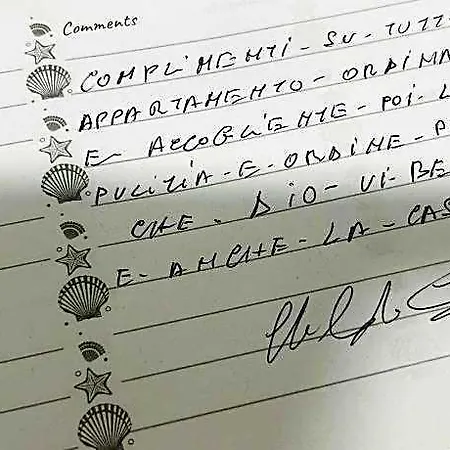 Comments
COMPLIMENTI - SU - TUTT
APPARTAMENTO - ORDINA
E ACCOGLIENTE - POI - L
PULIZIA - E - ORDINE - P
CHE - DIO - VI - BE
E - ANCHE - LA - CAS